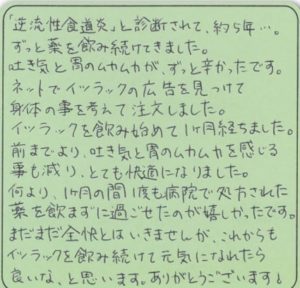 「逆流性食道炎」と診断されて、約5年…。
ずっと薬を飲み続けてきました。
吐き気と胃のムカムカが、ずっと辛かったです。
ネットでイツラックの広告を見つけて
身体の事を考えて注文しました。
イツラックを飲み始めて1ヶ月経ちました。
前までより、吐き気と胃のムカムカを感じる
事も減り、とても快適になりました。
何より、1ヶ月の間1度も病院で処方された
薬を飲まずに過ごせたのが嬉しかったです。
まだまだ全快とはいきませんが、これからも
イツラックを飲み続けて元気になれたら
良いな、と思います。ありがとうございます!